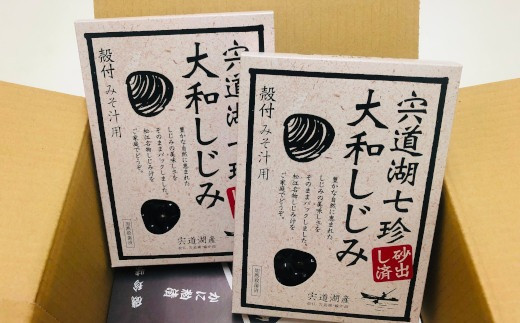 宍道湖七珍
大和しじみ
殻付 みそ汁用
豊かな自然に恵まれた
しじみの美味しさを
そのままパックしました。
松江名物しじみ汁を
ご家庭でどうぞ。
宍道湖産
宍道湖七珍
大和しじみ
砂出し済
殻付 みそ汁用
豊かな自然に恵まれた
しじみの美味しさを
そのままパックしました。
松江名物しじみ汁を
ご家庭でどうぞ。
宍道湖産